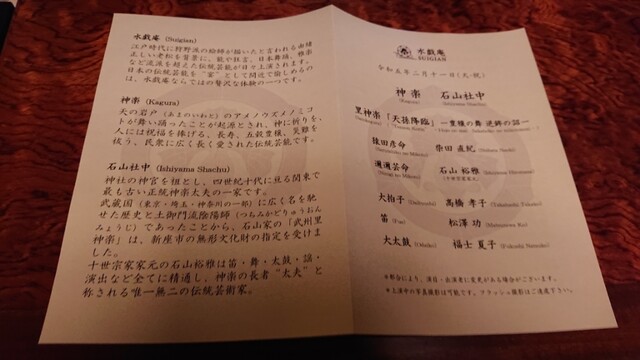 水戯庵 (Suigian)
江戸時代に狩野派の絵師が描いたと言われる由緒
正しい老松を背景に、能や狂言、日本舞踊、雅楽
など流派を超えた伝統芸能が日々上演されます。
日本の伝統芸能を“宴”として間近で愉しめるの
は、水戯庵ならではの贅沢な体験の一つです。
神楽 (Kagura)
天の岩戸(あまのいわと)のアメノウズメノミコ
トが舞い踊ったことが起源とされ、神に祈りを、
人には祝福を捧げる、長寿、五穀豊穣、災難を
祓う、民衆に広く長く愛された伝統芸能です。
石山社中 (Ishiyama Shachu)
神社の神官を祖とし、四世紀十代に亘る関東で
最も古い正統神楽太夫の一家です。
武蔵国(東京・埼玉・神奈川の一部)に広く名を馳
せた歴史と土御門流陰陽師(つちみかどりゅうおん
みょうじ)であったことから、石山家の「武州里
神楽」は、新座市の無形文化財の指定を受けま
した。
十世宗家家元の石山裕雅は笛・舞・太鼓・謡・
演出など全てに精通し、神楽の長者“太夫”と
称される唯一無二の伝統芸術家。
水戯庵
SUIGIAN
令和五年二月十一日(土・祝)
神楽 石山社中
(Kagura) (Ishiyama Shachu)
里神楽「天孫降臨」
猿田彦命 柴田 直紀
石山 裕雅
大拍子 高橋 孝子
笛 松澤 功
(Fue)
大太鼓 福士 夏子
(Odaiko) (Fukushi Natsuko)
*都合により、演目・出演者に変更がある場合がございます。
*上演中の写真撮影は可能です。フラッシュ撮影はご遠慮下さい。